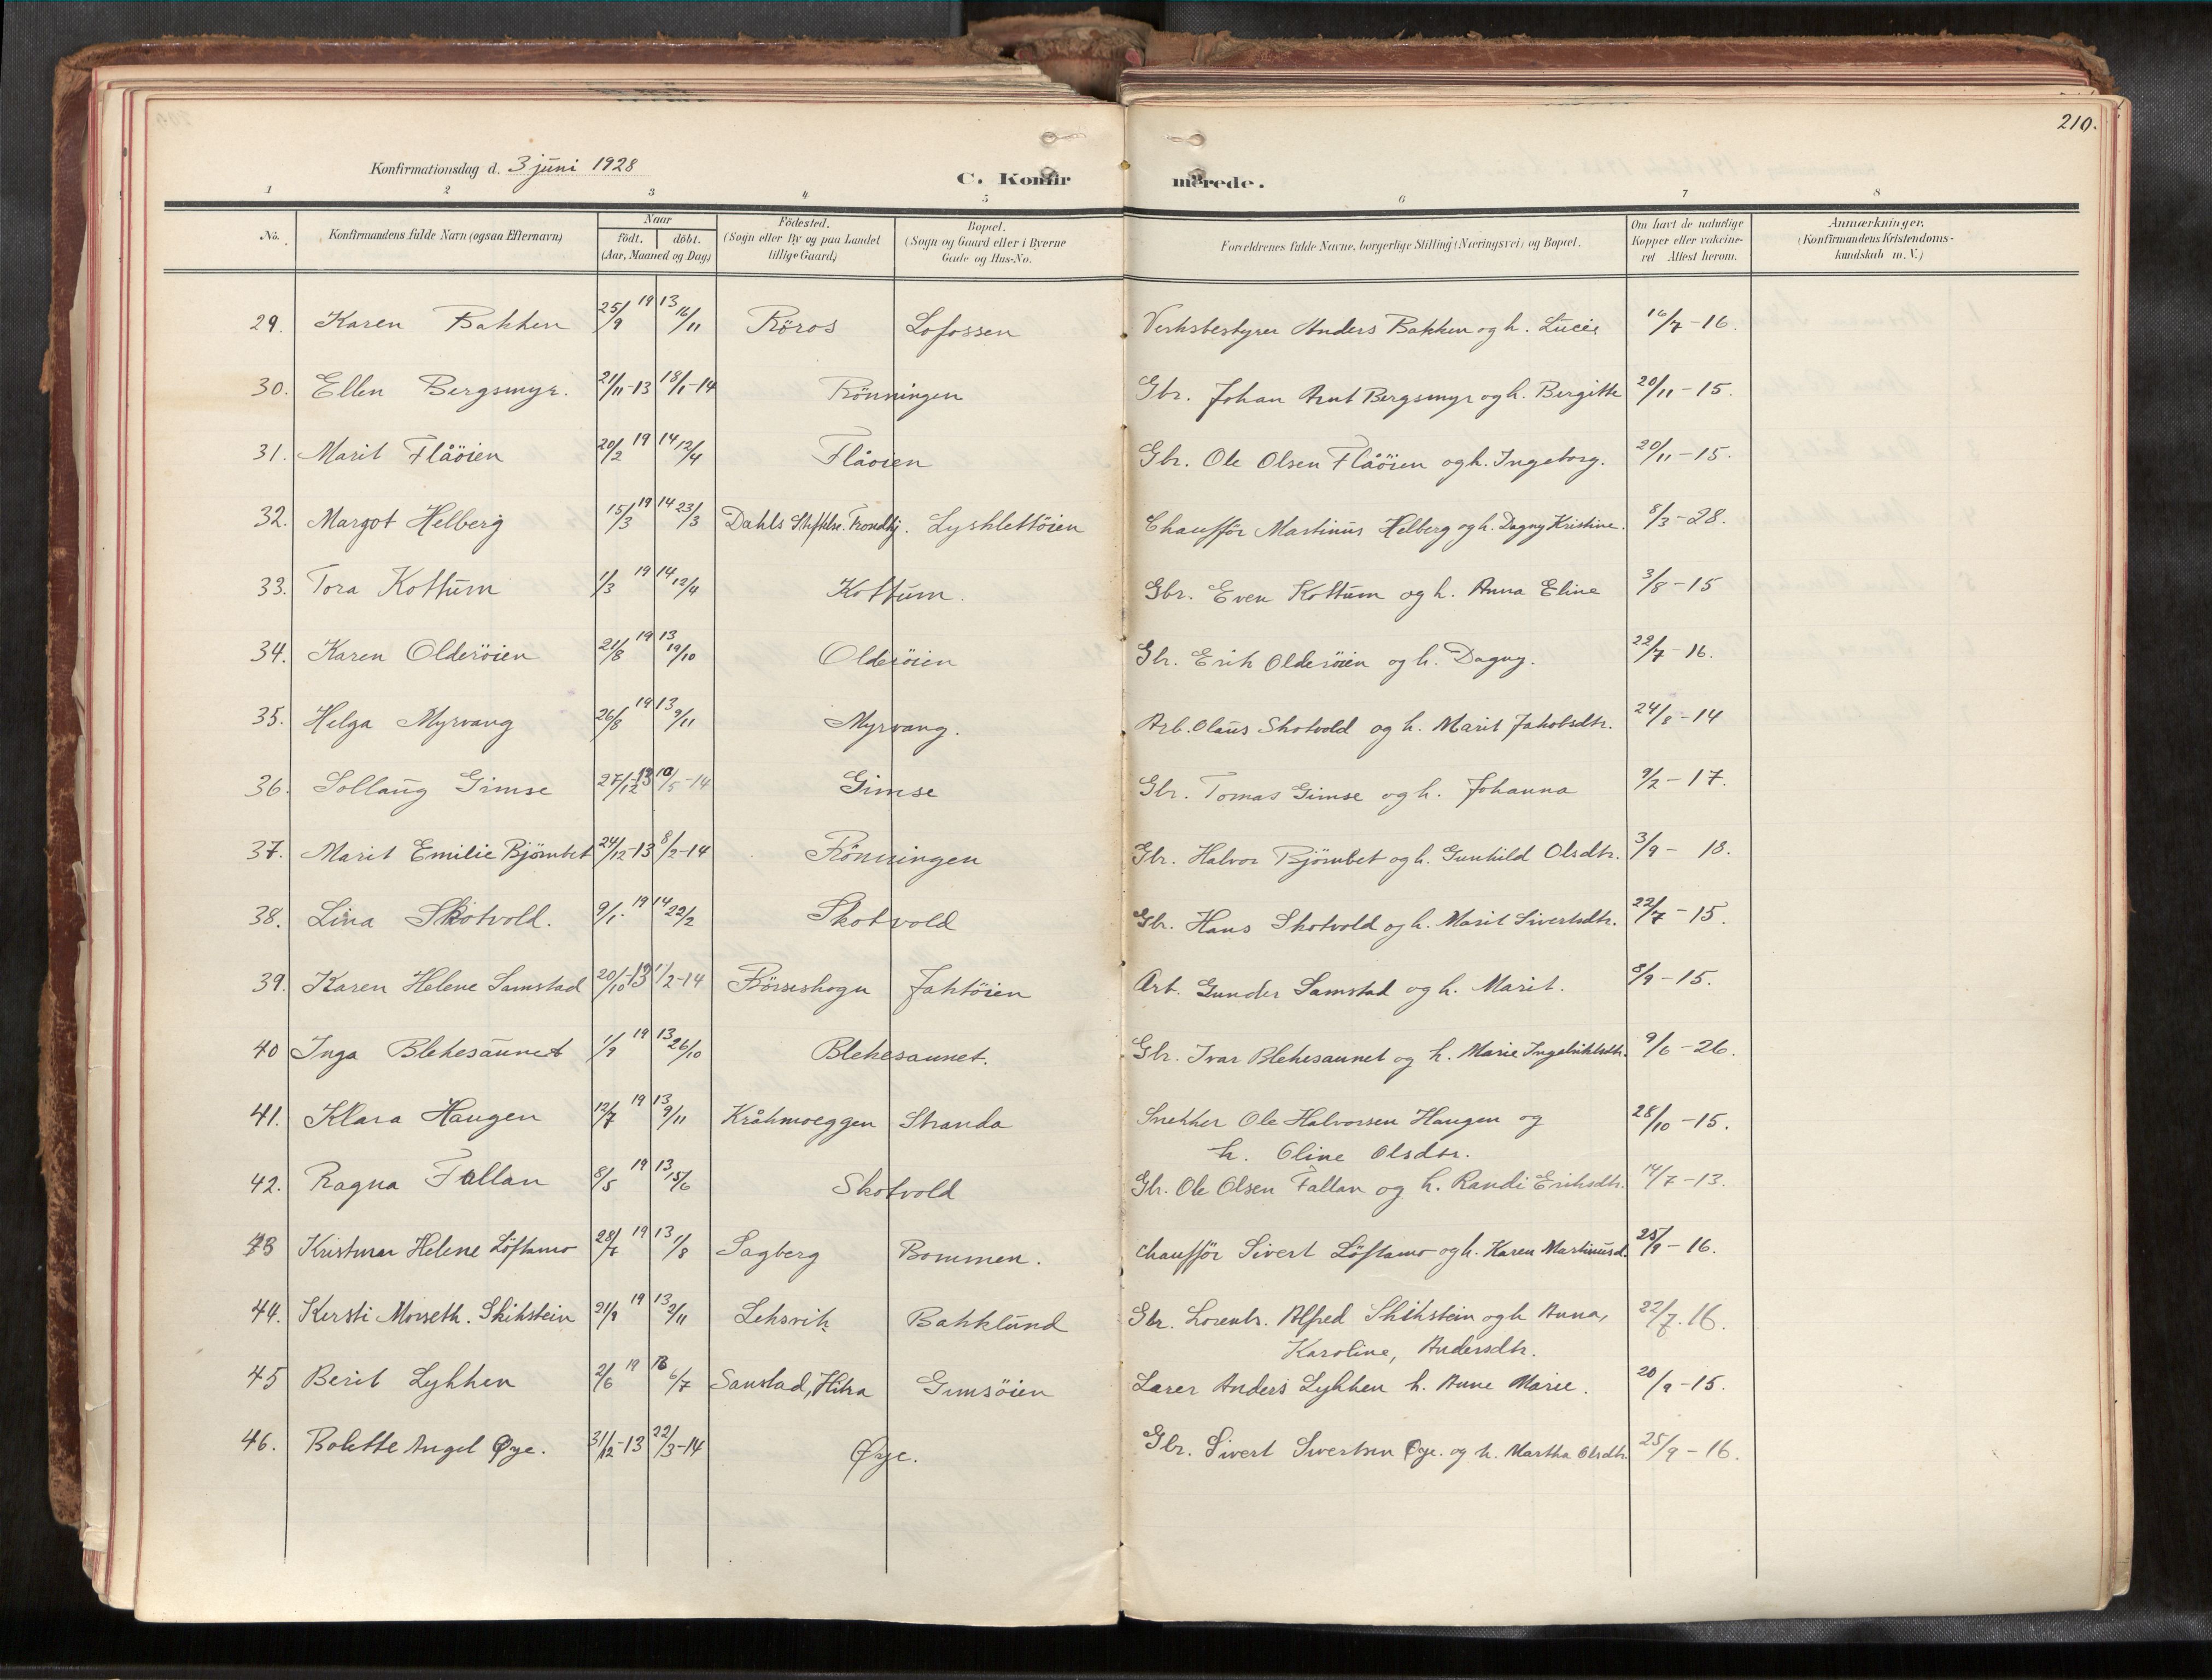 210.
Konfirmationsdag d. 3 juni 1928
C. Konfirmerede.
1 2 3 4 5 6 7 8
No. Konfirmandens fulde Navn (ogsaa Efternavn) Naar født. døbt. (Aar, Maaned og Dag) Fødested. (Sogn eller By og paa Landet tillige Gaard) Bopæl. (Sogn og Gaard eller i Byerne Gade og Hus-No. Forældrenes fulde Navne, borgerlige Stilling (Næringsvei) og Bopæl. Om havt de naturlige Kopper eller vaccineret Attest herom. Anmærkninger. (Konfirmandens Kristendomskundskab m. V.)
29. Karen Bakken 25/9 19 13 16/11 Röros Lofossen Verksbestyrer Anders Bakken og h. Lucie 16/7-16.
30. Ellen Bergsmyr. 21/11-13 18/1-14 Rönningen Gbr. Johan Arnt Bergsmyr og h. Bergitte 20/11-15.
31. Marit Flåöien 20/2 19 14 12/4 Flåoien Gbr. Ole Olsen Flåöien og h. Ingeborg. 20/11-15.
32. Margot Helberg 15/3 19 14 23/3 Dahls Stiftelse. Trondhj. Lyskletöien Chaufför Martinus Helberg og h. Dagny Kristine. 8/3-28.
33. Tora Kottum 1/3 19 14 12/4 Kottum. Gbr. Even Kottum og h. Anna Eline 3/8-15
34. Karen Olderöien 21/8 19 13 19/10 Olderöien Gbr. Erik Olderöien og h. Dagny. 22/7-16.
35. Helga Myrvang 26/8 19 13 9/11 Myrvang. Arb. Olaus Skotvold og h. Marit Jakobsdtr. 24/8-14
36. Sollaug Gimse 27/12-13 10/5-14 Gimse Gbr. Tomas Gimse og h. Johanna 9/2-17.
37. Marit Emilie Bjørnbet 24/12-13 8/2-14 Rönningen Gbr. Halvor Bjørnbet og h. Gunhild Olsdtr. 3/9-18.
38. Lina Skotvold. 9/1. 19 14 22/2 Skotvold Gbr. Hans Skotvold og h. Marit Sivertsdtr. 22/7-15.
39. Karen Helene Samstad 20/10-13 1/2-14 Börseskogn Jaktöien Arb. Gunder Samstad og h. Marit. 8/9-15.
40 Inga Blekesaunet 1/9 19 13 26/10 Blekesaunet. Gbr. Ivar Blekesaunet og h. Marie Ingebriktsdtr. 9/6-26.
41. Klara Haugen 12/7 19 13 9/11 Kråkmoeggen Stranda Snekker Ole Halvorsen Haugen og 28/10-15.
h. Oline Olsdtr.
42. Ragna Fallan 8/5 19 13 15/6 Skotvold Gbr. Ole Olsen Fallan og h. Randi Eriksdtr. 14/7-13.
43 Helene Löftamo 28/7 19 13 1/8 Sagberg Bommen. Chaufför Sivert Löftamo og h. Karen Martinusd. 25/9-16.
44. Kersti Morseth. Skikstein 21/9 19 13 2/11 Leksvik Bakklund Gbr. Lorents. Alfred Skikstein og h Anna, 22/7.16.
Karoline, Andersdtr.
45 Berit Lykken 2/6 19 13 6/7 Sanstad, Hitra Gimsöien Lærer Anders Lykken h. Anne Marie. 20/9-15.
46. Bolette Angel Øye. 31/12-13 22/3-14 Øye. Gbr. Sivert Sivertsen Øye. og h. Martha Olsdtr. 25/9-16.